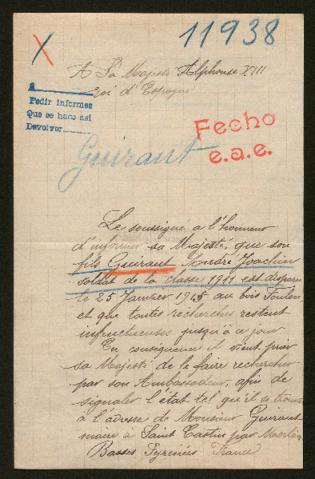 11938
A Sa Majesté Alphonse XIII
Roi d'Espagne
A
Pedir informes
Que se hace así
Devolver
Fecho
e.a.e.
Guiraut
Le soussigné a l'honneur
d'informer sa Majesté, que son
fils Guiraut André Joachin
soldat de la classe 1911 est disparu
le 25 Janvier 1915 au bois Foulon
et que toutes recherches restent
infructueuses jusqu'à ce jour
En conséquence il vient prier
sa Majesté de le faire rechercher
par son Ambassadeur, afin de
signaler l'état tel qu'il se trouve
à l'adresse de Monsieur Guiraut
maire à Saint Castin par Morlàas
Basses Pyrénées France